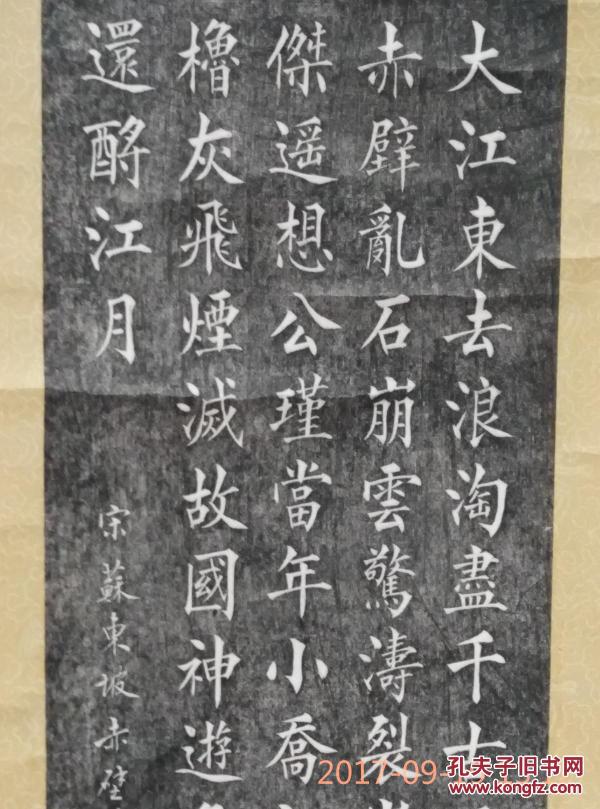 大江東去浪淘盡千古
赤壁亂石崩雲驚濤裂
傑遥想公瑾當年小喬
櫓灰飛煙滅故國神遊
還酹江月
宋蘇東坡赤壁
2017-09-
孔夫子旧书网
www.kongfz.com